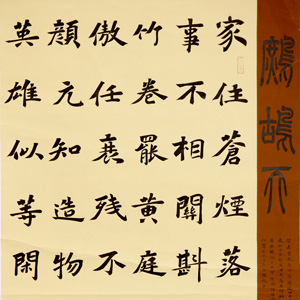 鷓鴣天
家住蒼煙落
事不相關斟
竹卷罷黃庭
傲任衰殘不
顏元知造物
英雄似等閑